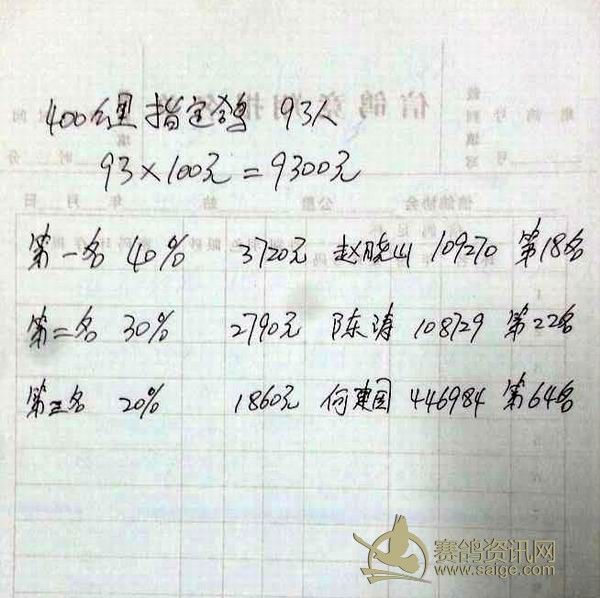 400公里 指定鸽 93人
93×100元=9300元
第一名 40% 3720元 赵晓山 109270 第18名
第二名 30% 2790元 陈涛 108729 第22名
第三名 20% 1860元 何建国 446984 第64名
赛鸽资讯网
www.saige.com